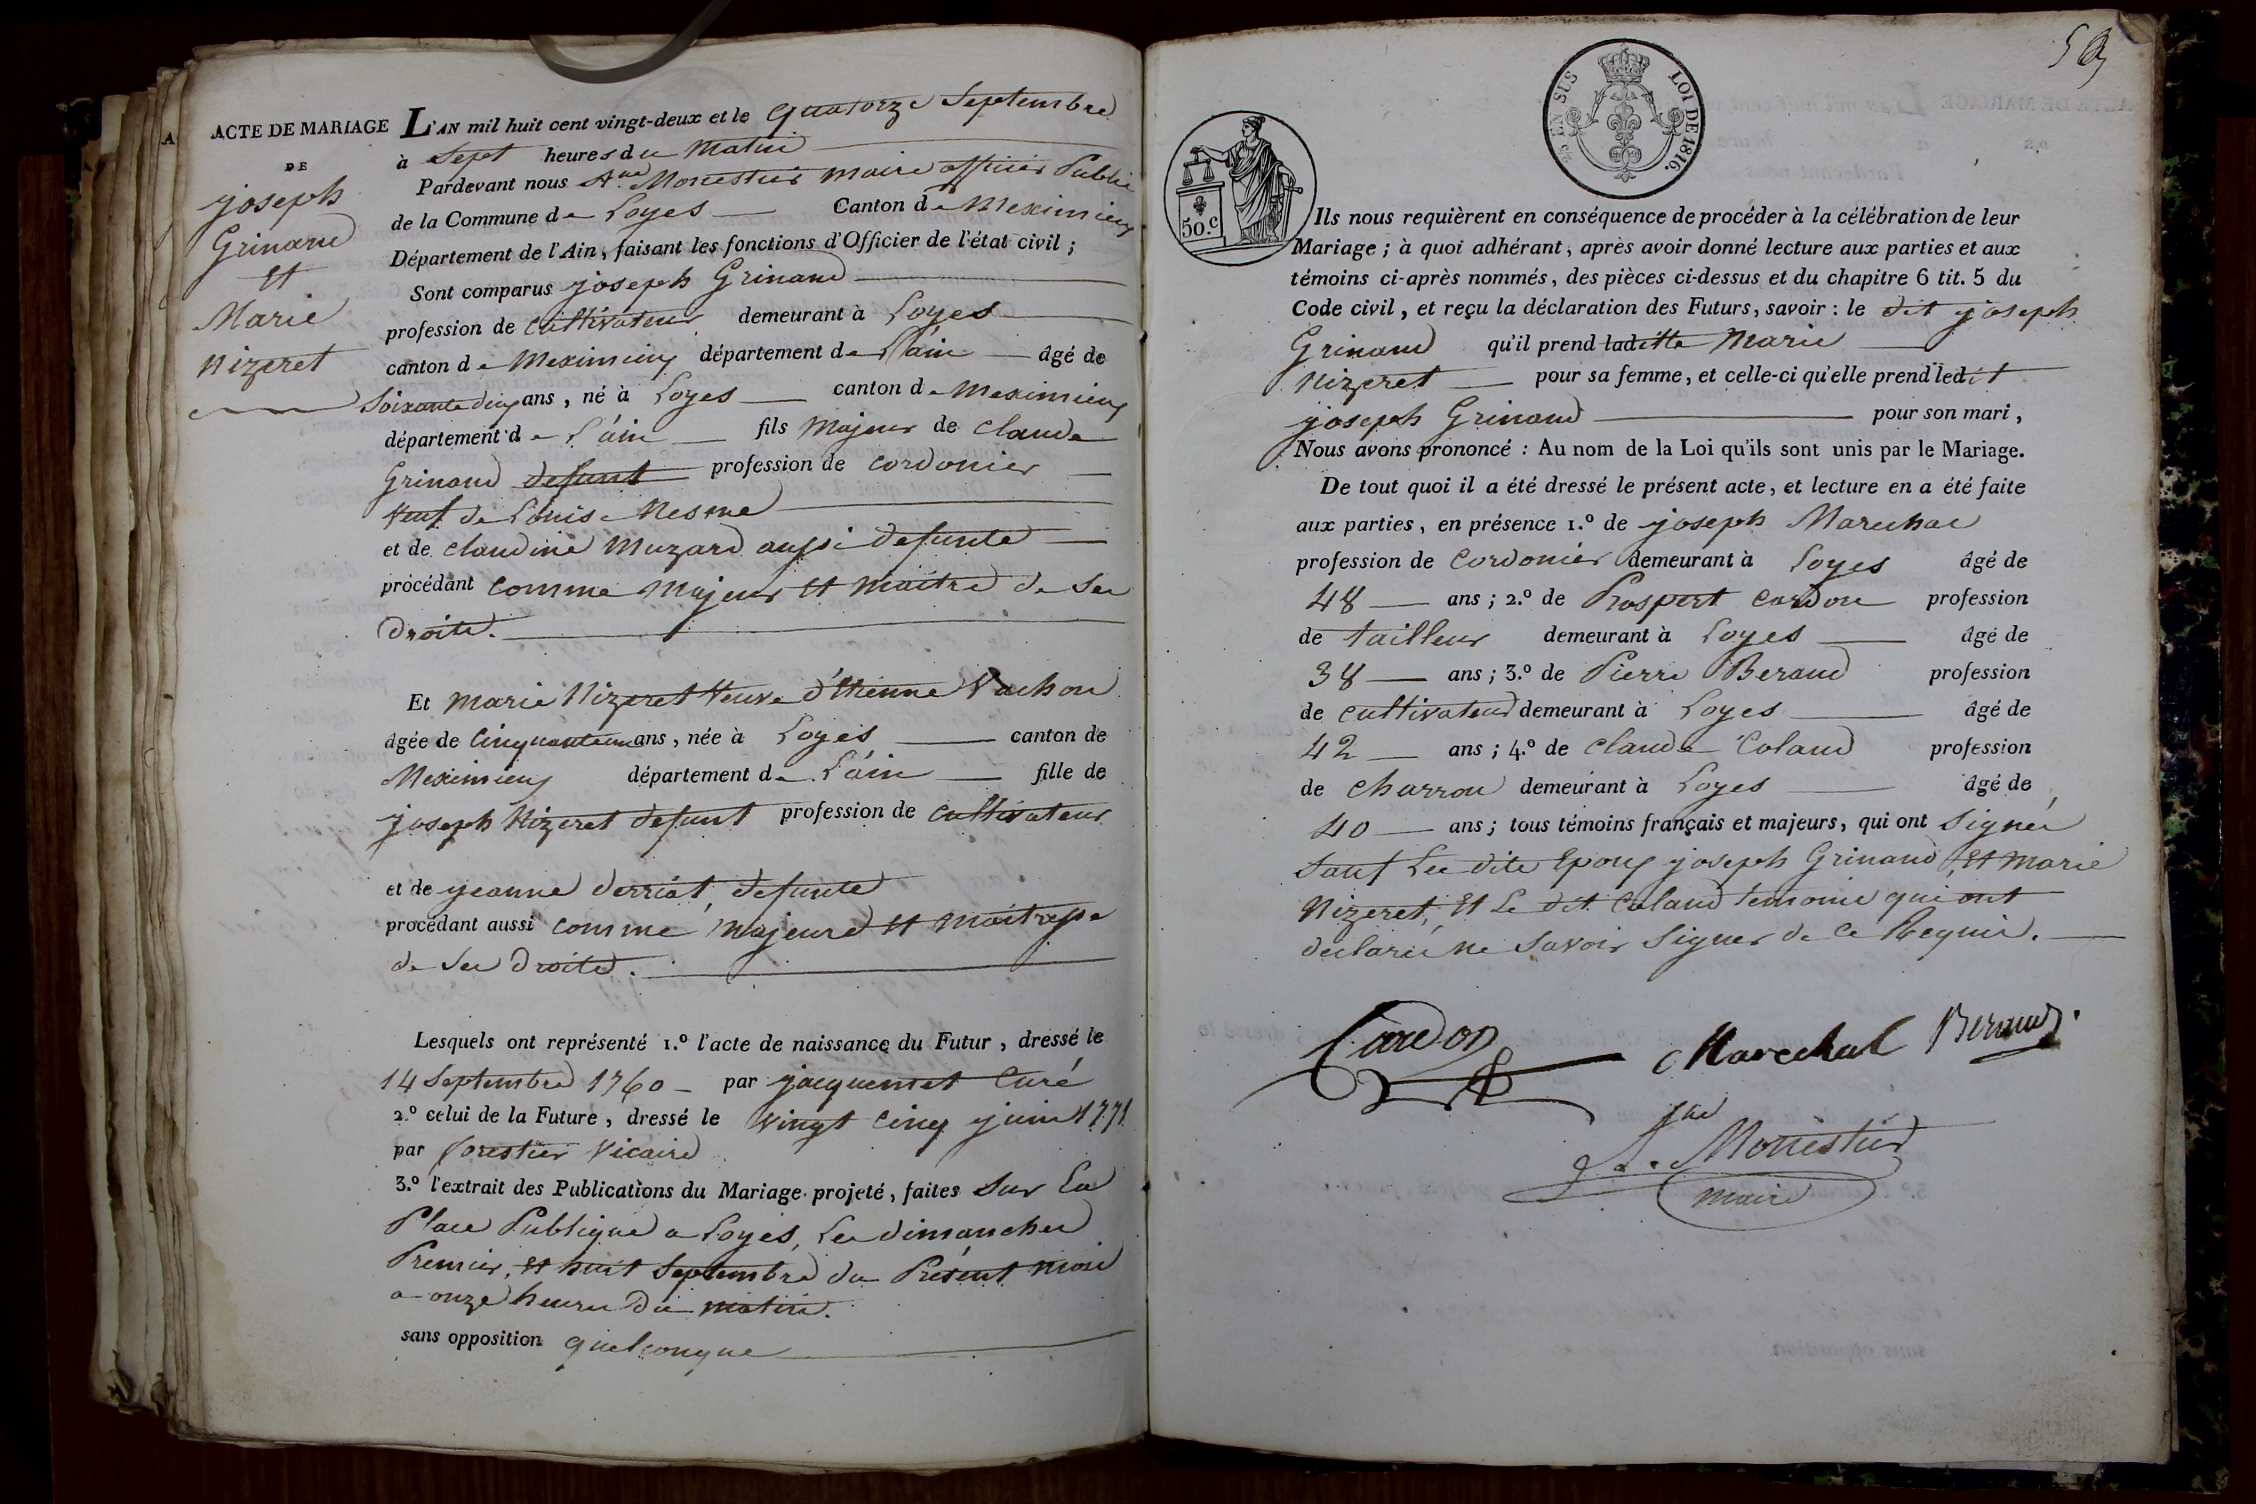 A
ACTE DE MARIAGE
DE
joseph
Grinand
et
Marie
Nizeret
L'AN mil huit cent vingt-deux et le quatorze Septembre
à Sept heures du Matin
Pardevant nous Monestier maire officier Public
de la Commune de Loyes Canton de Meximieux
Département de l'Ain, faisant les fonctions d'Officier de l'état civil ;
Sont comparus joseph Grinand
profession de cultivateur demeurant à Loyes
canton de Meximieux département de L'ain âgé de
Soixante deux ans, né à Loyes canton de Meximieux
département de L'ain fils Majeur de Claude
Grinand defunt profession de cordonier
Veuf de Louise Nesme
et de claudine Muzard aussi defunte
procédant comme Majeur et Maitre de ses
droits.
Et Marie Nizeret Veuve d'Etienne Vachon
âgée de Cinquante un ans, née à Loyes canton de
Meximieux département de L'ain fille de
joseph Nizeret defunt profession de cultivateur
et de jeanne derriat, defunte
procédant aussi comme Majeure et Maitresse
de ses droits.
Lesquels ont représenté 1.º l'acte de naissance du Futur, dressé le
14 Septembre 1760 par jacquemet Curé
2.º celui de la Future, dressé le vingt cinq juin 1771
par forestier Vicaire
3.º l'extrait des Publications du Mariage projeté, faites Sur La
Place Publique a Loyes, Les dimanches
Premier, et huit Septembre du Présent mois
a onze heures du matin.
sans opposition quelconque
EN SUS
LOI DE 1816.
50.c
Ils nous requièrent en conséquence de procéder à la célébration de leur
Mariage ; à quoi adhérant, après avoir donné lecture aux parties et aux
témoins ci-après nommés, des pièces ci-dessus et du chapitre 6 tit. 5 du
Code civil, et reçu la déclaration des Futurs, savoir : le dit joseph
Grinand qu'il prend laditte Marie
Nizeret pour sa femme, et celle-ci qu'elle prend ledit
joseph Grinand pour son mari,
Nous avons prononcé : Au nom de la Loi qu'ils sont unis par le Mariage.
De tout quoi il a été dressé le présent acte, et lecture en a été faite
aux parties, en présence 1.º de joseph Marechal
profession de Cordonier demeurant à Loyes âgé de
48 ans ; 2.º de Prospert Cardon profession
de tailleur demeurant à Loyes âgé de
38 ans ; 3.º de Pierre Beraud profession
de cultivateur demeurant à Loyes âgé de
42 ans ; 4.º de Claude Coland profession
de Charron demeurant à Loyes âgé de
40 ans ; tous témoins français et majeurs, qui ont Signés
Sauf Les dits Epoux joseph Grinand, et Marie
Nizeret, et Le dit Coland temoins qui ont
declarés ne Savoir Signer de ce Requis.
Cardon
Marechal
Beraud
Monestier
maire